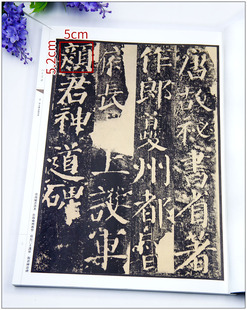 5cm
5.2cm
唐故秘書省著
作郎夔州都督
府長 上護軍
顏君神道碑